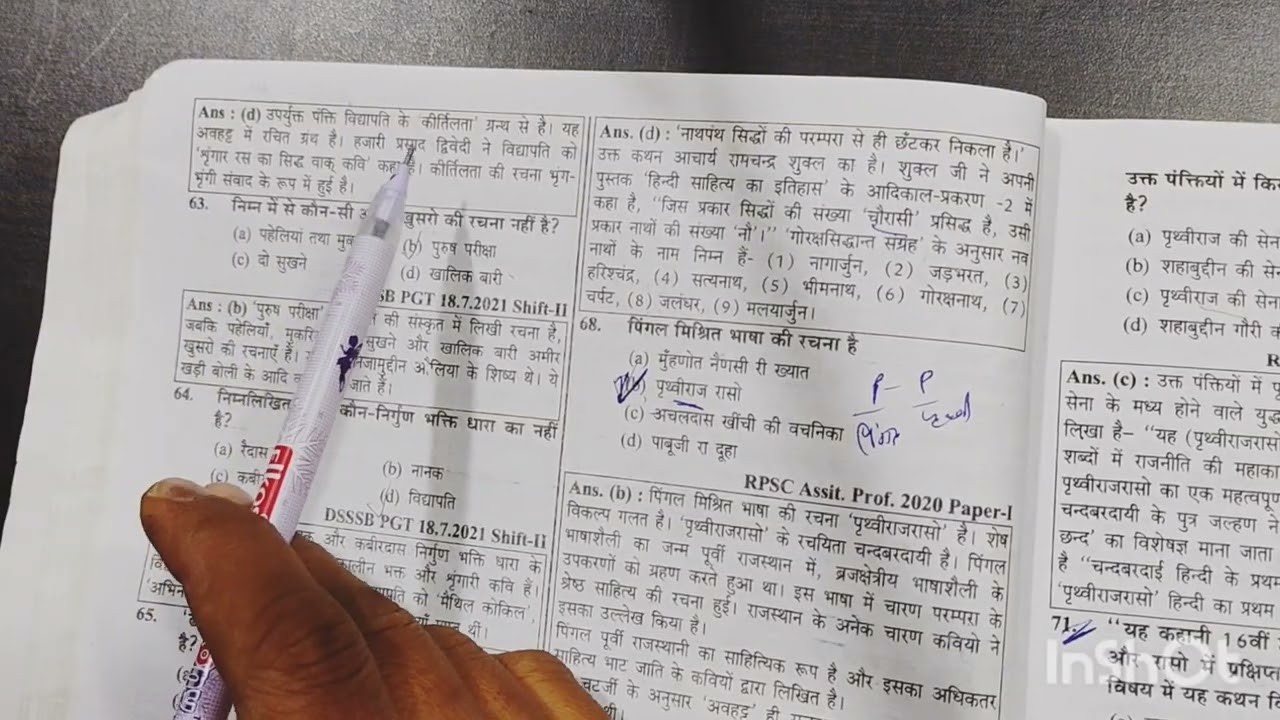 Ans : (d) उपर्युक्त पंक्ति विद्यापति के 'कीर्तिलता' ग्रन्थ से है। यह
अवहट्ट में रचित ग्रंथ है। हजारी प्रसाद द्विवेदी ने विद्यापति को
'श्रृंगार रस का सिद्ध वाक् कवि' कहा है। कीर्तिलता की रचना भृंग-
भृंगी संवाद के रूप में हुई है।
63. निम्न में से कौन-सी खुसरो की रचना नहीं है?
(a) पहेलियां तथा
(b) पुरुष परीक्षा
(c) दो सुखने
(d) खालिक बारी
PGT 18.7.2021 Shift-II
Ans : (b) 'पुरुष परीक्षा' की संस्कृत में लिखी रचना है,
जबकि पहेलियाँ, सुखने और खालिक बारी अमीर
खुसरो की रचनाएँ हैं। औलिया के शिष्य थे। ये
खड़ी बोली के आदि जाते हैं।
64. निम्नलिखित कौन-निर्गुण भक्ति धारा का नहीं
है?
(a) रैदास
(b) नानक
(d) विद्यापति
DSSSB PGT 18.7.2021 Shift-II
और कबीरदास निर्गुण भक्ति धारा के
भक्त और श्रृंगारी कवि हैं।
को 'मैथिल कोकिल',
65.
है?
Ans. (d) : 'नाथपंथ सिद्धों की परम्परा से ही छँटकर निकला है।'
उक्त कथन आचार्य रामचन्द्र शुक्ल का है। शुक्ल जी ने अपनी
पुस्तक 'हिन्दी साहित्य का इतिहास' के आदिकाल-प्रकरण -2 में
कहा है, "जिस प्रकार सिद्धों की संख्या 'चौरासी' प्रसिद्ध है, उसी
प्रकार नाथों की संख्या 'नौ'।" 'गोरक्षसिद्धान्त संग्रह' के अनुसार नव
नाथों के नाम निम्न हैं- (1) नागार्जुन, (2) जड़भरत, (3)
हरिश्चंद्र, (4) सत्यनाथ, (5) भीमनाथ, (6) गोरक्षनाथ, (7)
चर्पट, (8) जलंधर, (9) मलयार्जुन।
68. पिंगल मिश्रित भाषा की रचना है
(a) मुँहणोत नैणसी री ख्यात
पृथ्वीराज रासो
(c) अचलदास खींची की वचनिका
(d) पाबूजी रा दूहा
P - P
RPSC Assit. Prof. 2020 Paper-I
Ans. (b) : पिंगल मिश्रित भाषा की रचना 'पृथ्वीराजरासो' है। शेष
विकल्प गलत है। 'पृथ्वीराजरासो' के रचयिता चन्दबरदायी है। पिंगल
भाषाशैली का जन्म पूर्वी राजस्थान में, ब्रजक्षेत्रीय भाषाशैली के
उपकरणों को ग्रहण करते हुआ था। इस भाषा में चारण परम्परा के
श्रेष्ठ साहित्य की रचना हुई। राजस्थान के अनेक चारण कवियो ने
इसका उल्लेख किया है।
पिंगल पूर्वी राजस्थानी का साहित्यिक रूप है और इसका अधिकतर
साहित्य भाट जाति के कवियों द्वारा लिखित है।
के अनुसार 'अवहट्ट' ही
उक्त पंक्तियों में
है?
(a) पृथ्वीराज की
(b) शहाबुद्दीन की
(c) पृथ्वीराज की
(d) शहाबुद्दीन गौरी
Ans. (c) : उक्त पंक्तियों में
सेना के मध्य होने वाले
लिखा है- "यह
शब्दों में राजनीति की
पृथ्वीराजरासो का एक
चन्दबरदायी के पुत्र जल्हण
छन्द' का विशेषज्ञ माना जाता
है "चन्दबरदाई हिन्दी के प्रथम
'पृथ्वीराजरासो' हिन्दी का प्रथम
71. "यह कहानी 16वीं
और रासो में
विषय में यह कथन
InShOt